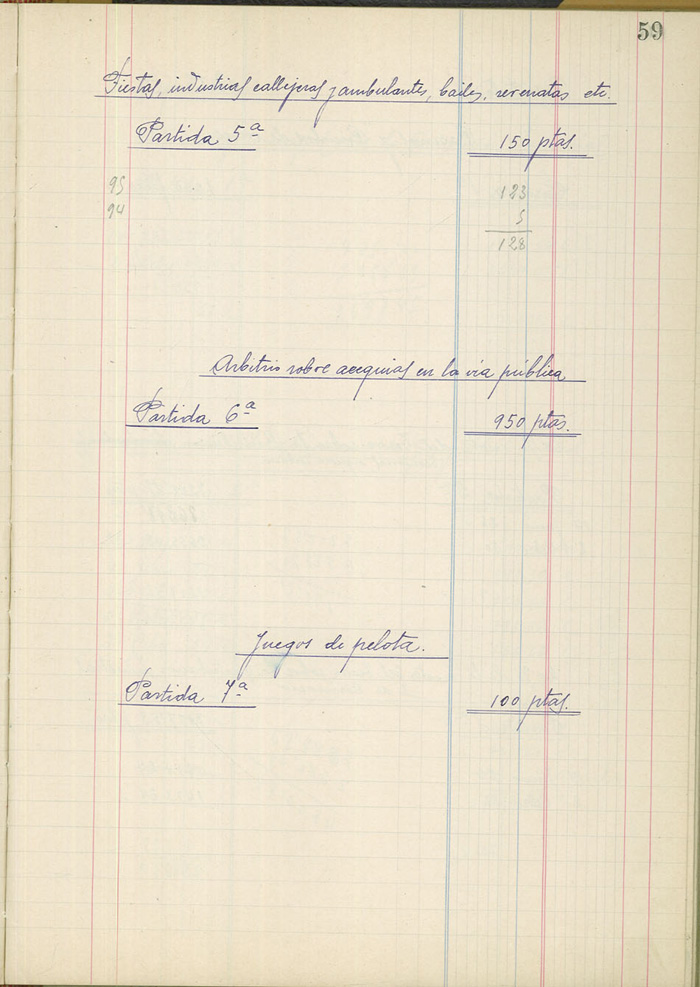 59
Fiestas, industrias callejeras y ambulantes, bailes, serenatas etc.
Partida 5ª 150 ptas.
95 123
94 5
128
Arbitrio sobre acequias en la vía pública
Partida 6ª 950 ptas.
Juegos de pelota.
Partida 7ª 100 ptas.